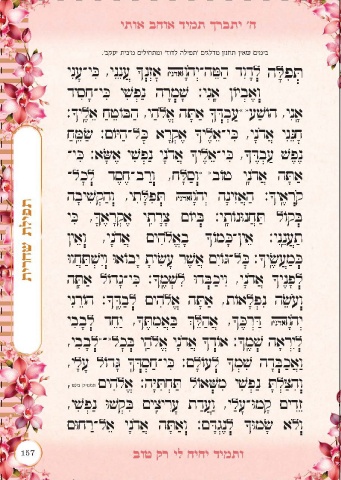 ה' יתברך תמיד אוהב אותי
בימים שאין תחנון מדלגים 'תפילה לדוד' ומתחילים מ'בית יעקב'.
תְּפִלָּה לְדָוִד הַטֵּה־יְהֹוָה אָזְנְךָ עֲנֵנִי, כִּי־עָנִי
וְאֶבְיוֹן אָנִי: שָׁמְרָה נַפְשִׁי כִּי־חָסִיד
אָנִי, הוֹשַׁע־עַבְדְּךָ אַתָּה אֱלֹהַי, הַבּוֹטֵחַ אֵלֶיךָ:
חָנֵּנִי אֲדֹנָי, כִּי־אֵלֶיךָ אֶקְרָא כָּל־הַיּוֹם: שַׂמֵּחַ
נֶפֶשׁ עַבְדֶּךָ, כִּי־אֵלֶיךָ אֲדֹנָי נַפְשִׁי אֶשָּׂא: כִּי־
אַתָּה אֲדֹנָי טוֹב וְסַלָּח, וְרַב־חֶסֶד לְכָל־
קֹרְאֶיךָ: הַאֲזִינָה יְהֹוָה תְּפִלָּתִי, וְהַקְשִׁיבָה
בְּקוֹל תַּחֲנוּנוֹתָי: בְּיוֹם צָרָתִי אֶקְרָאֶךָּ, כִּי
תַעֲנֵנִי: אֵין־כָּמוֹךָ בָאֱלֹהִים אֲדֹנָי, וְאֵין
כְּמַעֲשֶׂיךָ: כָּל־גּוֹיִם אֲשֶׁר עָשִׂיתָ יָבוֹאוּ וְיִשְׁתַּחֲווּ
לְפָנֶיךָ אֲדֹנָי, וִיכַבְּדוּ לִשְׁמֶךָ: כִּי־גָדוֹל אַתָּה
וְעֹשֵׂה נִפְלָאוֹת, אַתָּה אֱלֹהִים לְבַדֶּךָ: הוֹרֵנִי
יְהֹוָה דַּרְכֶּךָ, אֲהַלֵּךְ בַּאֲמִתֶּךָ, יַחֵד לְבָבִי
לְיִרְאָה שְׁמֶךָ: אוֹדְךָ אֲדֹנָי אֱלֹהַי בְּכָל־לְבָבִי,
וַאֲכַבְּדָה שִׁמְךָ לְעוֹלָם: כִּי־חַסְדְּךָ גָּדוֹל עָלָי,
וְהִצַּלְתָּ נַפְשִׁי מִשְּׁאוֹל תַּחְתִּיָּה: אֱלֹהִים
זֵדִים קָמוּ־עָלַי, וַעֲדַת עָרִיצִים בִּקְשׁוּ נַפְשִׁי,
וְלֹא שָׂמוּךָ לְנֶגְדָּם: וְאַתָּה אֲדֹנָי אֵל־רַחוּם
תפילת שחרית
157
ותמיד יהיה לי רק טוב